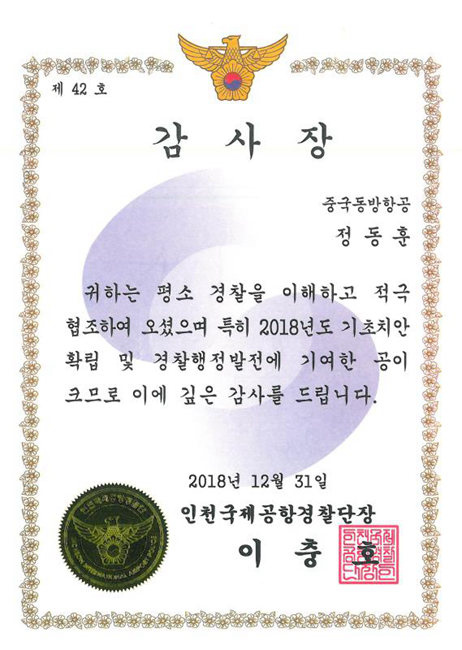 제 42 호
감 사 장
중국동방항공
정 동 훈
귀하는 평소 경찰을 이해하고 적극
협조하여 오셨으며 특히 2018년도 기초치안
확립 및 경찰행정발전에 기여한 공이
크므로 이에 깊은 감사를 드립니다.
2018년 12월 31일
인천국제공항경찰단장
이 충 호
인천국제공항경찰단